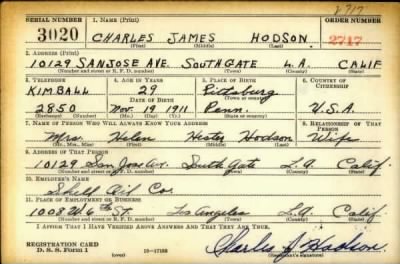 2717
SERIAL NUMBER 1. NAME (Print) ORDER NUMBER
3020 CHARLES JAMES HODSON 2717
(First) (Middle) (Last)
2. ADDRESS (Print)
10129 SANJOSE AVE. SOUTHGATE L.A. CALIF
(Number and street or R. F. D. number) (Town) (County) (State)
3. TELEPHONE 4. AGE IN YEARS 5. PLACE OF BIRTH 6. COUNTRY OF CITIZENSHIP
KIMBALL 29 Pittsburg
DATE OF BIRTH (Town or county)
2850 Nov. 19 1911 Penn. U.S.A.
(Exchange) (Number) (Mo.) (Day) (Yr.) (State or country)
7. NAME OF PERSON WHO WILL ALWAYS KNOW YOUR ADDRESS 8. RELATIONSHIP OF THAT PERSON
Mrs. Helen Hester Hodson Wife
(Mr., Mrs., Miss) (First) (Middle) (Last)
9. ADDRESS OF THAT PERSON
10129 San Jose Av. South Gate L.A. Calif.
(Number and street or R. F. D. number) (Town) (County) (State)
10. EMPLOYER'S NAME
Shell Oil Co.
11. PLACE OF EMPLOYMENT OR BUSINESS
1008 W 6th St. Los Angeles L.A. Calif
(Number and street or R. F. D. number) (Town) (County) (State)
I AFFIRM THAT I HAVE VERIFIED ABOVE ANSWERS AND THAT THEY ARE TRUE.
REGISTRATION CARD
D. S. S. Form 1 (over) Charles J Hodson
(Registrant's signature)